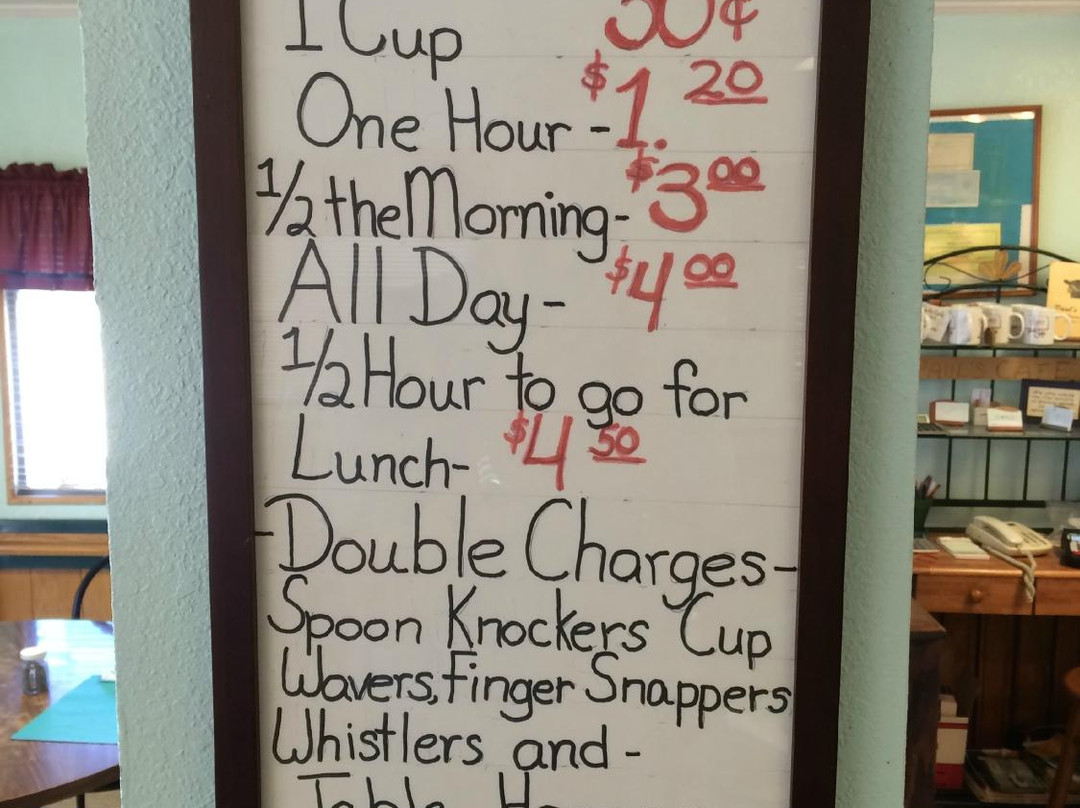 1 Cup 50¢
One Hour - $1.20
1/2 the Morning- $3 00
All Day - $4 00
1/2 Hour to go for
Lunch- $4 50
-Double Charges-
Spoon Knockers Cup
Wavers, Finger Snappers
Whistlers and -
Table
CAFE